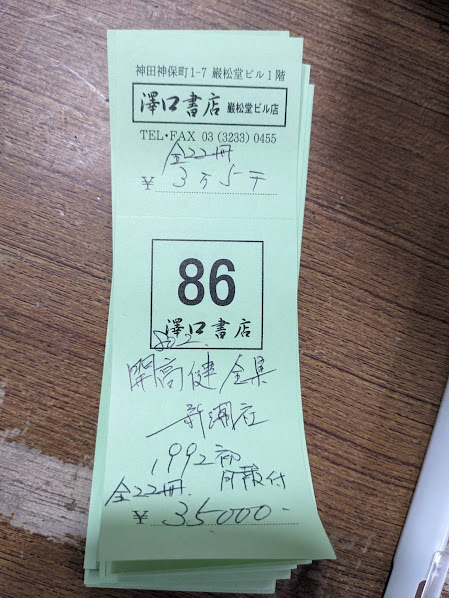 神田神保町1-7 巌松堂ビル1階
澤口書店 巌松堂ビル店
TEL・FAX 03 (3233) 0455
全22冊
¥ 3万5千
86
澤口書店
開高健全集
新潮社
1992初
月報付
全22冊
¥ 35000-